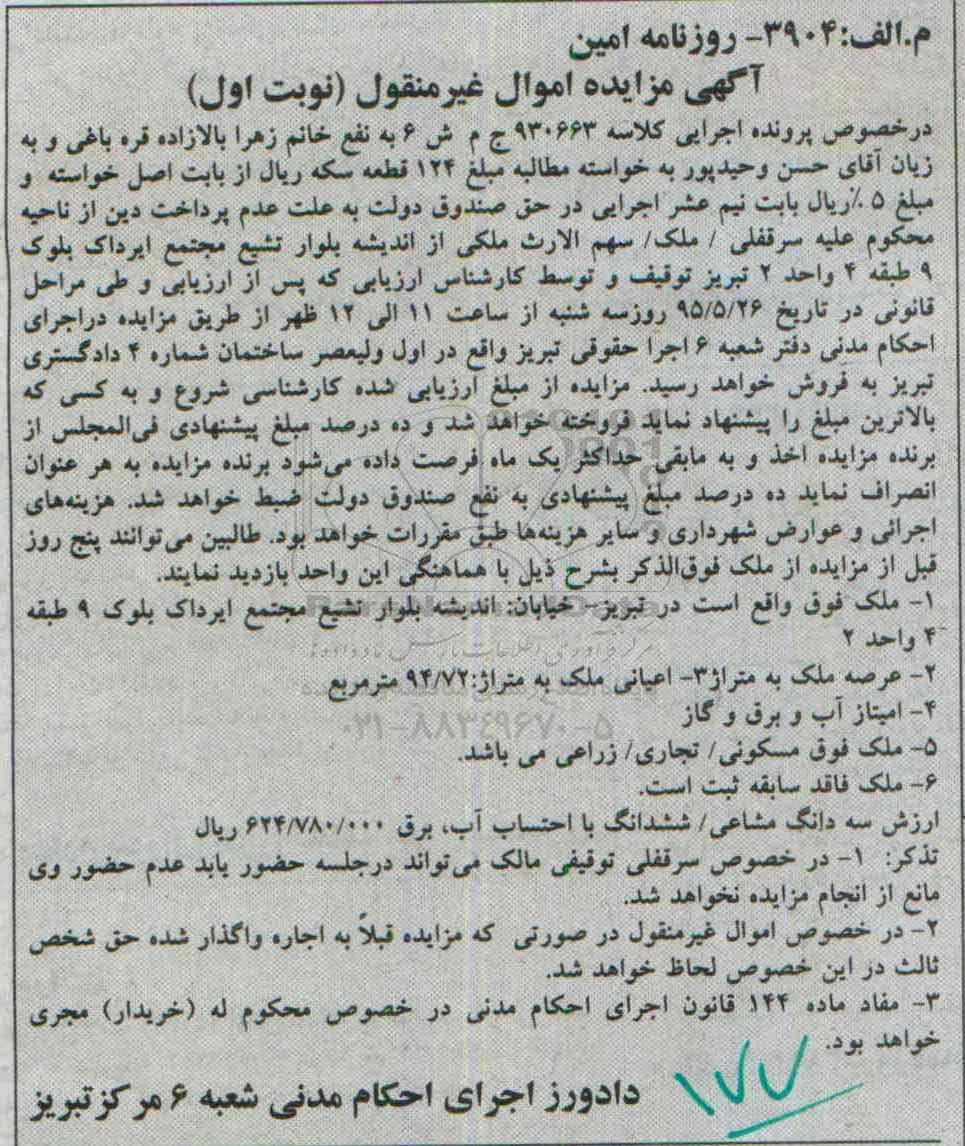 م.الف:۳۹۰۴- روزنامه امین
آگهی مزایده اموال غیرمنقول (نوبت اول)
درخصوص پرونده اجرایی کلاسه ۹۳۰۶۶۳ ج م ش ۶ به نفع خانم زهرا بالازاده قره باغی و به
زیان آقای حسن وحیدپور به خواسته مطالبه مبلغ ۱۲۴ قطعه سکه ریال از بابت اصل خواسته و
مبلغ ۵٪ریال بابت نیم عشر اجرایی در حق صندوق دولت به علت عدم پرداخت دین از ناحیه
محکوم علیه سرقفلی / ملک/ سهم الارث ملکی از اندیشه بلوار تشیع مجتمع ایرداک بلوک
۹ طبقه ۴ واحد ۲ تبریز توقیف و توسط کارشناس ارزیابی که پس از ارزیابی و طی مراحل
قانونی در تاریخ ۹۵/۵/۲۶ روزسه شنبه از ساعت ۱۱ الی ۱۲ ظهر از طریق مزایده دراجرای
احکام مدنی دفتر شعبه ۶ اجرا حقوقی تبریز واقع در اول ولیعصر ساختمان شماره ۴ دادگستری
تبریز به فروش خواهد رسید. مزایده از مبلغ ارزیابی شده کارشناسی شروع و به کسی که
بالاترین مبلغ را پیشنهاد نماید فروخته خواهد شد و ده درصد مبلغ پیشنهادی فی‌المجلس از
برنده مزایده اخذ و به مابقی حداکثر یک ماه فرصت داده می‌شود برنده مزایده به هر عنوان
انصراف نماید ده درصد مبلغ پیشنهادی به نفع صندوق دولت ضبط خواهد شد. هزینه‌های
اجرائی و عوارض شهرداری و سایر هزینه‌ها طبق مقررات خواهد بود. طالبین می‌توانند پنج روز
قبل از مزایده از ملک فوق‌الذکر بشرح ذیل با هماهنگی این واحد بازدید نمایند.
۱- ملک فوق واقع است در تبریز- خیابان: اندیشه بلوار تشیع مجتمع ایرداک بلوک ۹ طبقه
۴ واحد ۲
۲- عرصه ملک به متراژ۳- اعیانی ملک به متراژ:۹۴/۷۲ مترمربع
۴- امیتاز آب و برق و گاز
۰۲۱-۸۸۳۴۹۶۷۰-۵
۵- ملک فوق مسکونی/ تجاری/ زراعی می باشد.
۶- ملک فاقد سابقه ثبت است.
ارزش سه دانگ مشاعی/ ششدانگ با احتساب آب، برق ۶۲۴/۷۸۰/۰۰۰ ریال
تذکر: ۱- در خصوص سرقفلی توقیفی مالک می‌تواند درجلسه حضور یابد عدم حضور وی
مانع از انجام مزایده نخواهد شد.
۲- در خصوص اموال غیرمنقول در صورتی که مزایده قبلاً به اجاره واگذار شده حق شخص
ثالث در این خصوص لحاظ خواهد شد.
۳- مفاد ماده ۱۴۴ قانون اجرای احکام مدنی در خصوص محکوم له (خریدار) مجری
خواهد بود.
۱۷۷
دادورز اجرای احکام مدنی شعبه ۶ مرکزتبریز